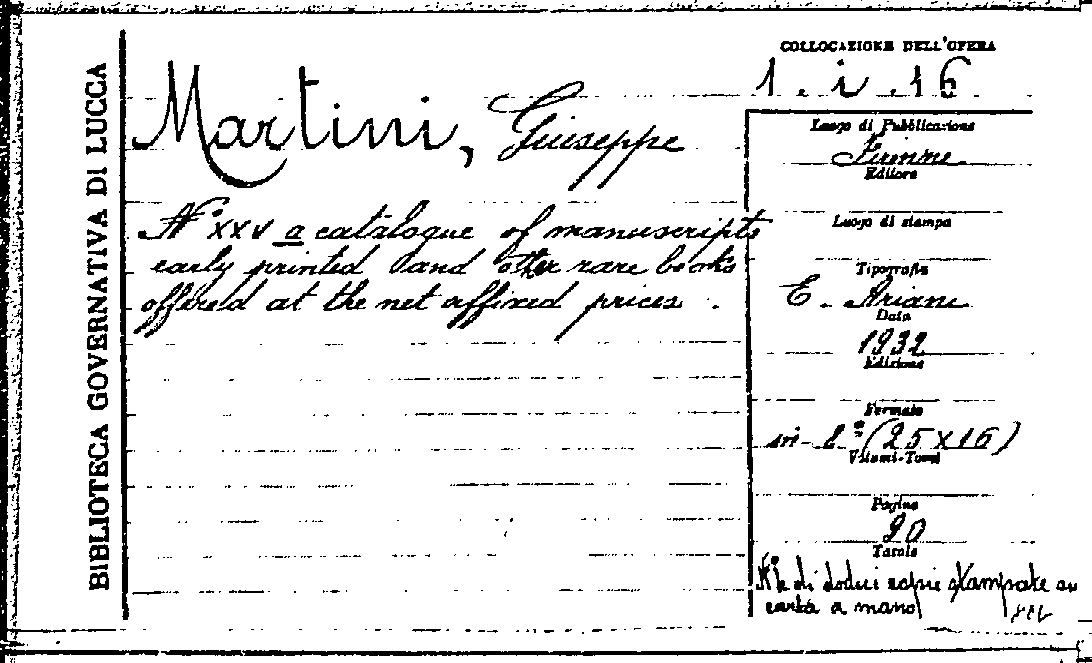 BIBLIOTECA GOVERNATIVA DI LUCCA
COLLOCAZIONE DELL'OPERA
1. i. 16
Martini, Giuseppe
N° XXV a catalogue of manuscripts
early printed and other rare books
offered at the net affixed prices.
Luogo di Pubblicazione
Firenze
Editore
Luogo di stampa
Tipografia
E. Ariani
Data
1932
Edizione
Formato
in-8° (25x16)
Volumi-Tomi
Pagine
90
Tavole
di dodici copie stampate su
carta a mano